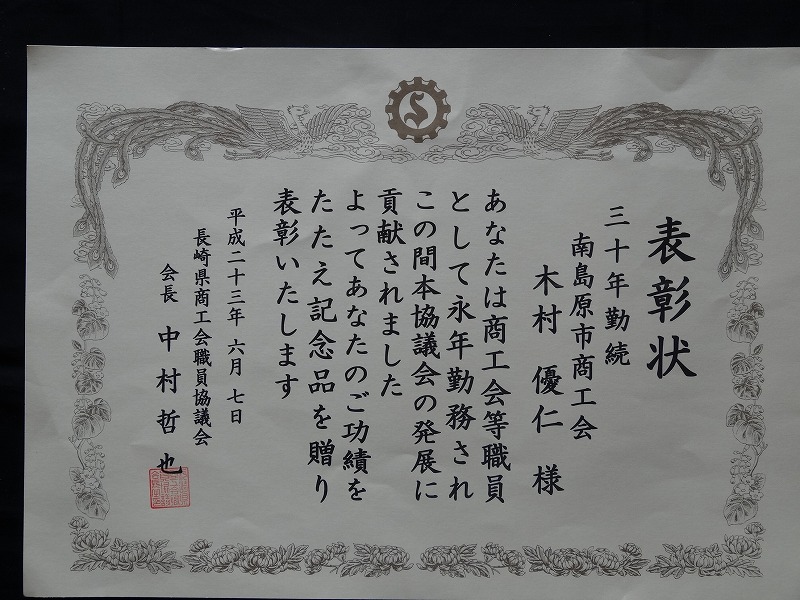 表彰状
三十年勤続
南島原市商工会
木村 優仁 様
あなたは商工会等職員
として永年勤務され
この間本協議会の発展に
貢献されました
よってあなたのご功績を
たたえ記念品を贈り
表彰いたします
平成二十三年 六月 七日
長崎県商工会職員協議会
会長 中村 哲也
S